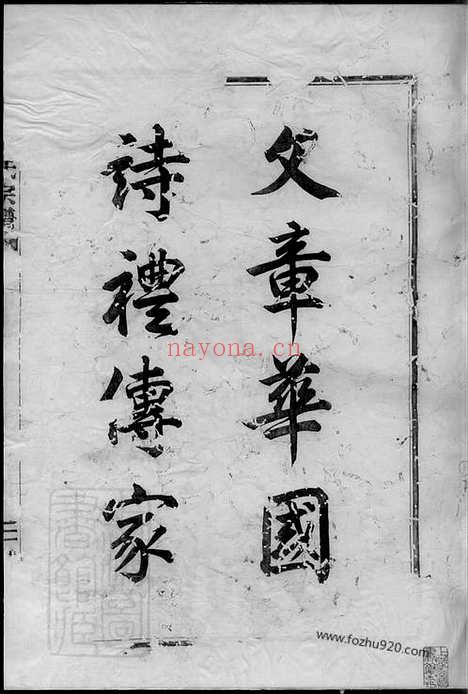 文章華國
詩禮傳家
氏宗譜
nayona.cn
www.fozhu920.com